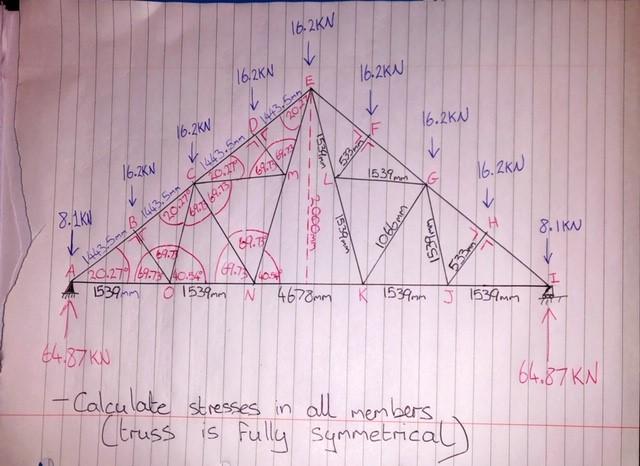 16.2KN
16.2KN 16.2KN
16.2KN 16.2KN
16.2KN 16.2KN
8.1KN 8.1KN
E
D F
C M L G
B H
A O N K J I
1443.5mm 1443.5mm 1443.5mm 1443.5mm
20.27° 20.27° 20.27° 20.27°
69.73 69.73 69.73 69.73 69.73
69.73 40.54° 69.73 40.54°
2000mm
1539mm 533mm
1539mm
1539mm 1066mm 1539mm 533mm
1539mm 1539mm 4678mm 1539mm 1539mm
64.87KN 64.87KN
- Calculate stresses in all members
(truss is fully symmetrical)